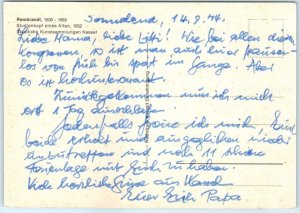 Rembrandt, 1606 - 1669
Studienkopf eines Alten, 1632
Staatliche Kunstsammlungen Kassel
Sonnabend, 14.9.74
Liebe Hanna, liebe Litti! Wie bei allen diesen
Kongressen, so ist man auch hier pausen-
los von früh bis spät im Gange. Aber
es ist hochinteressant.
Zurückgekommen muß ich mich
erst 1 Tag
Jedenfalls freue ich mich, Euch
beide erholt und ausgeglichen wieder
anzutreffen und noch 11
Ferientage mit Euch zu haben.
Viele herzliche Grüße aus Kassel
Euer Papa.